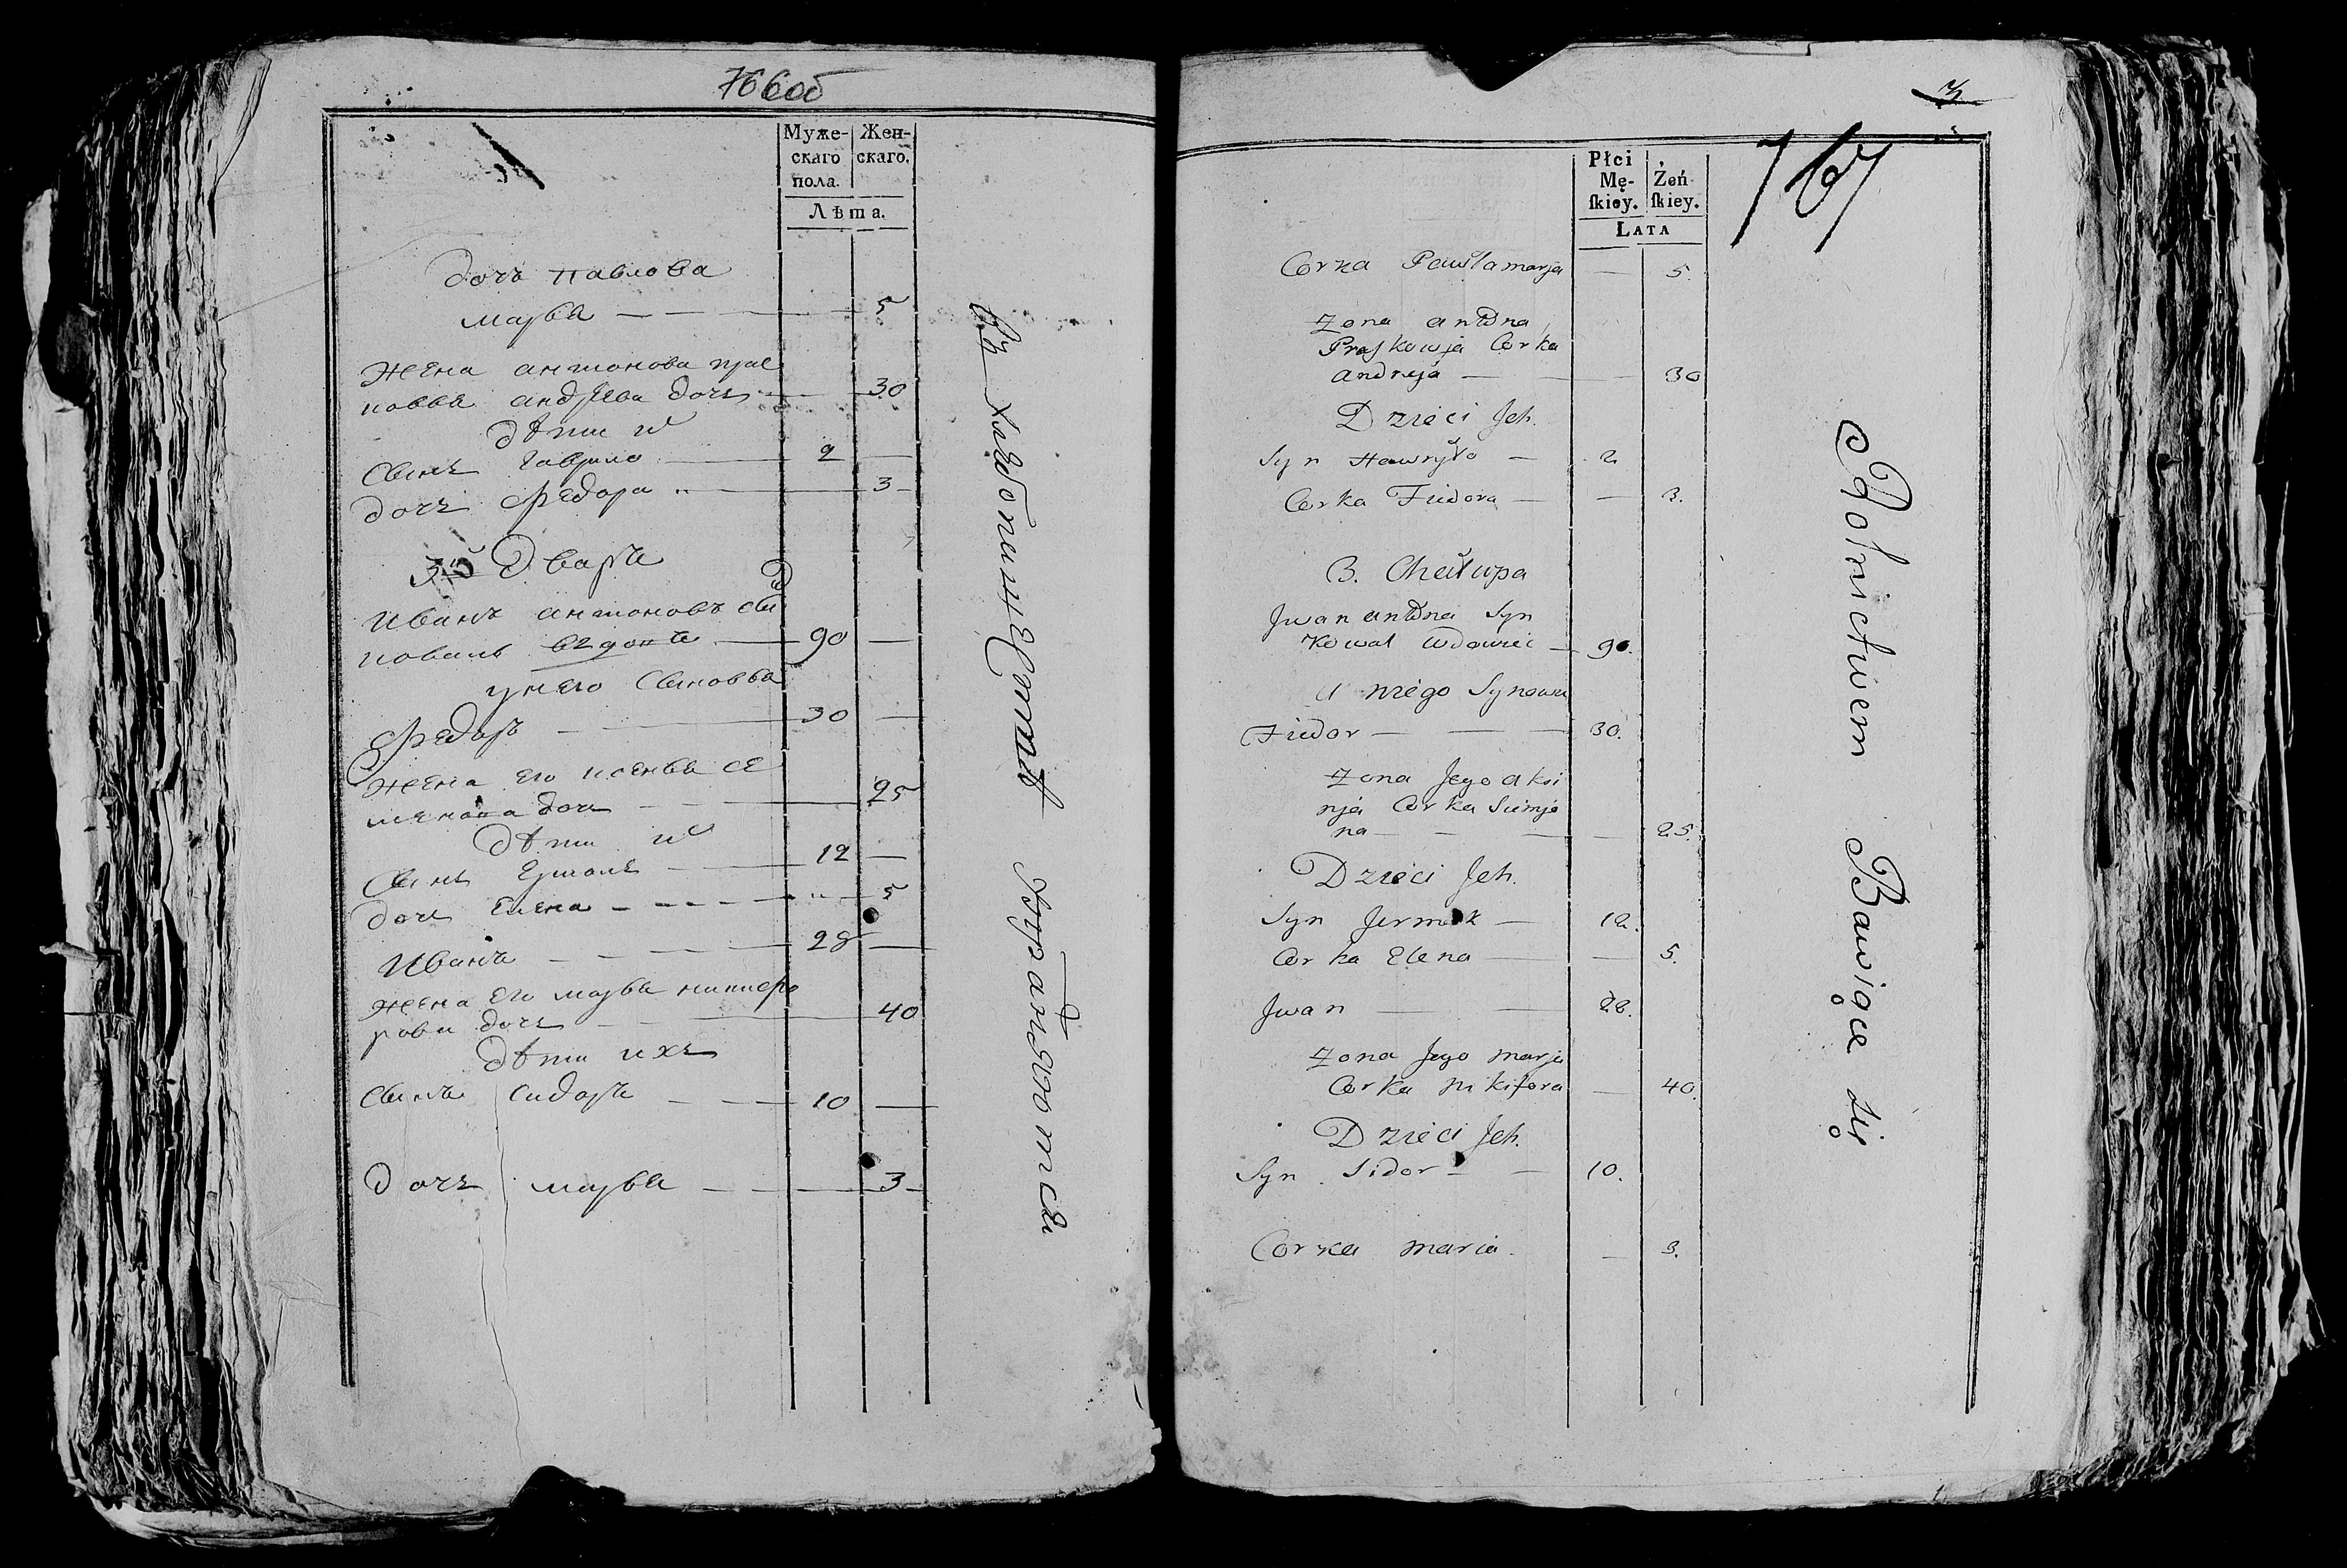 766об
Муже- Жен-
скаго скаго.
пола.
Лѣта.
дочь Павлова
марья — — — 5
жена антонова прас
ковья андреева дочь — 30
дѣти их
Сынъ Гаврило — 2 —
дочь Федора — 3
3й Дворъ
Иванъ антоновъ сы
коваль вдовъ — 90 —
у него Сыновья
Федоръ — 30 —
жена его ксенья се
менова дочь — 25
дѣти их
Сынъ Ермолъ — 12 —
дочь Елена — 5
Иванъ — 28 —
жена его марья никифо
рова дочь — 40
дѣти ихъ
Сынъ Сидоръ — 10 —
Дочь марья — 3
въ хлѣбопашествѣ упражняются
3
767
Płci
Mę- Żeń-
skiey. skiey.
LATA
Corka Pawła marja — 5.
Żona antona
Praskowja Corka
andreja — 30
Dzieci Jch.
Syn Hawryło — 2
Corka Fiedora — — 3.
3. Chałupa
Jwan antona Syn
Kowal Wdowiec — 90.
U niego Synowie
Fiedor — — 30.
Żona Jego aksi
nja Corka Siemjo
na — — 25.
Dzieci Jch.
Syn Jermak — 12.
Corka Elena — — 5.
Jwan — — 28.
Żona Jego marja
Corka nikifora — 40.
Dzieci Jch.
Syn Sidor — — 10.
Corka maria — 3.
Rolnictwem Bawiące się